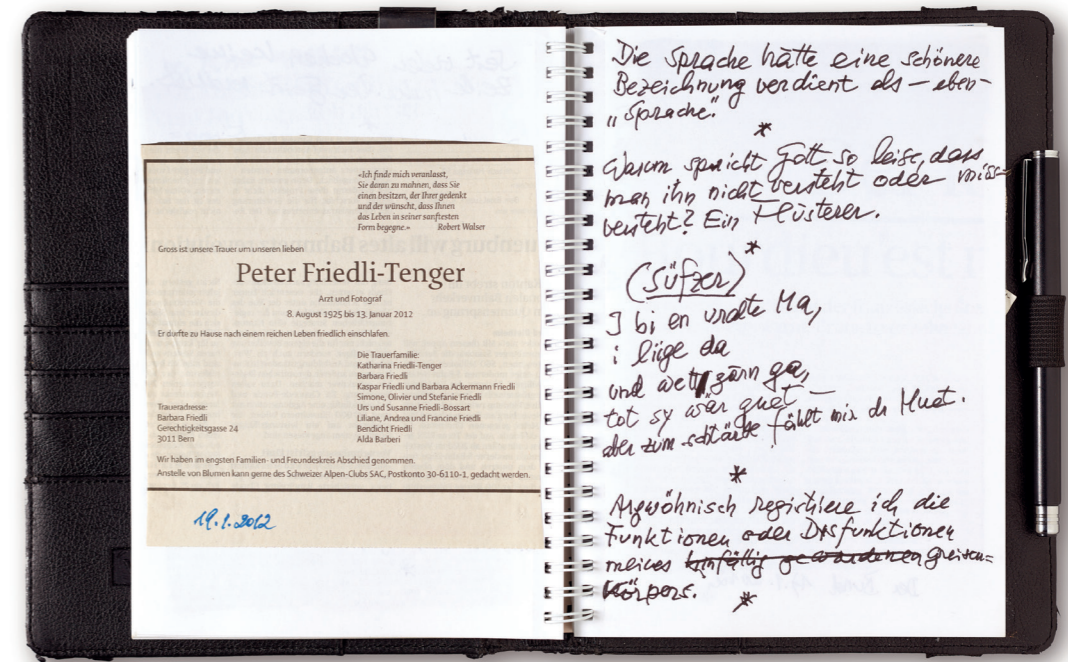 «Ich finde mich veranlasst,
Sie daran zu mahnen, dass Sie
einen besitzen, der Ihrer gedenkt
und der wünscht, dass Ihnen
das Leben in seiner sanftesten
Form begegne.» Robert Walser
Gross ist unsere Trauer um unseren lieben
Peter Friedli-Tenger
Arzt und Fotograf
8. August 1925 bis 13. Januar 2012
Er durfte zu Hause nach einem reichen Leben friedlich einschlafen.
Die Trauerfamilie:
Katharina Friedli-Tenger
Barbara Friedli
Kaspar Friedli und Barbara Ackermann Friedli
Simone, Olivier und Stefanie Friedli
Urs und Susanne Friedli-Bossart
Liliane, Andrea und Francine Friedli
Bendicht Friedli
Alda Barberi
Traueradresse:
Barbara Friedli
Gerechtigkeitsgasse 24
3011 Bern
Wir haben im engsten Familien- und Freundeskreis Abschied genommen.
Anstelle von Blumen kann gerne des Schweizer Alpen-Clubs SAC, Postkonto 30-6110-1, gedacht werden.
19.1.2012
Die Sprache hätte eine schönere
Bezeichnung verdient als – eben –
„Sprache."
*
Warum spricht Gott so leise, dass
man ihn nicht versteht oder miss-
versteht? Ein Flüsterer.
*
(Süfzer)
I bi en uralte Ma,
i lige da
und wett gärn ga,
tot sy wär guet –
aber zum schtärbe fählt mir dr Muet.
*
Argwöhnisch registriere ich die
Funktionen oder Disfunktionen
meines hinfällig gewordenen greisen-
Körpers.
*